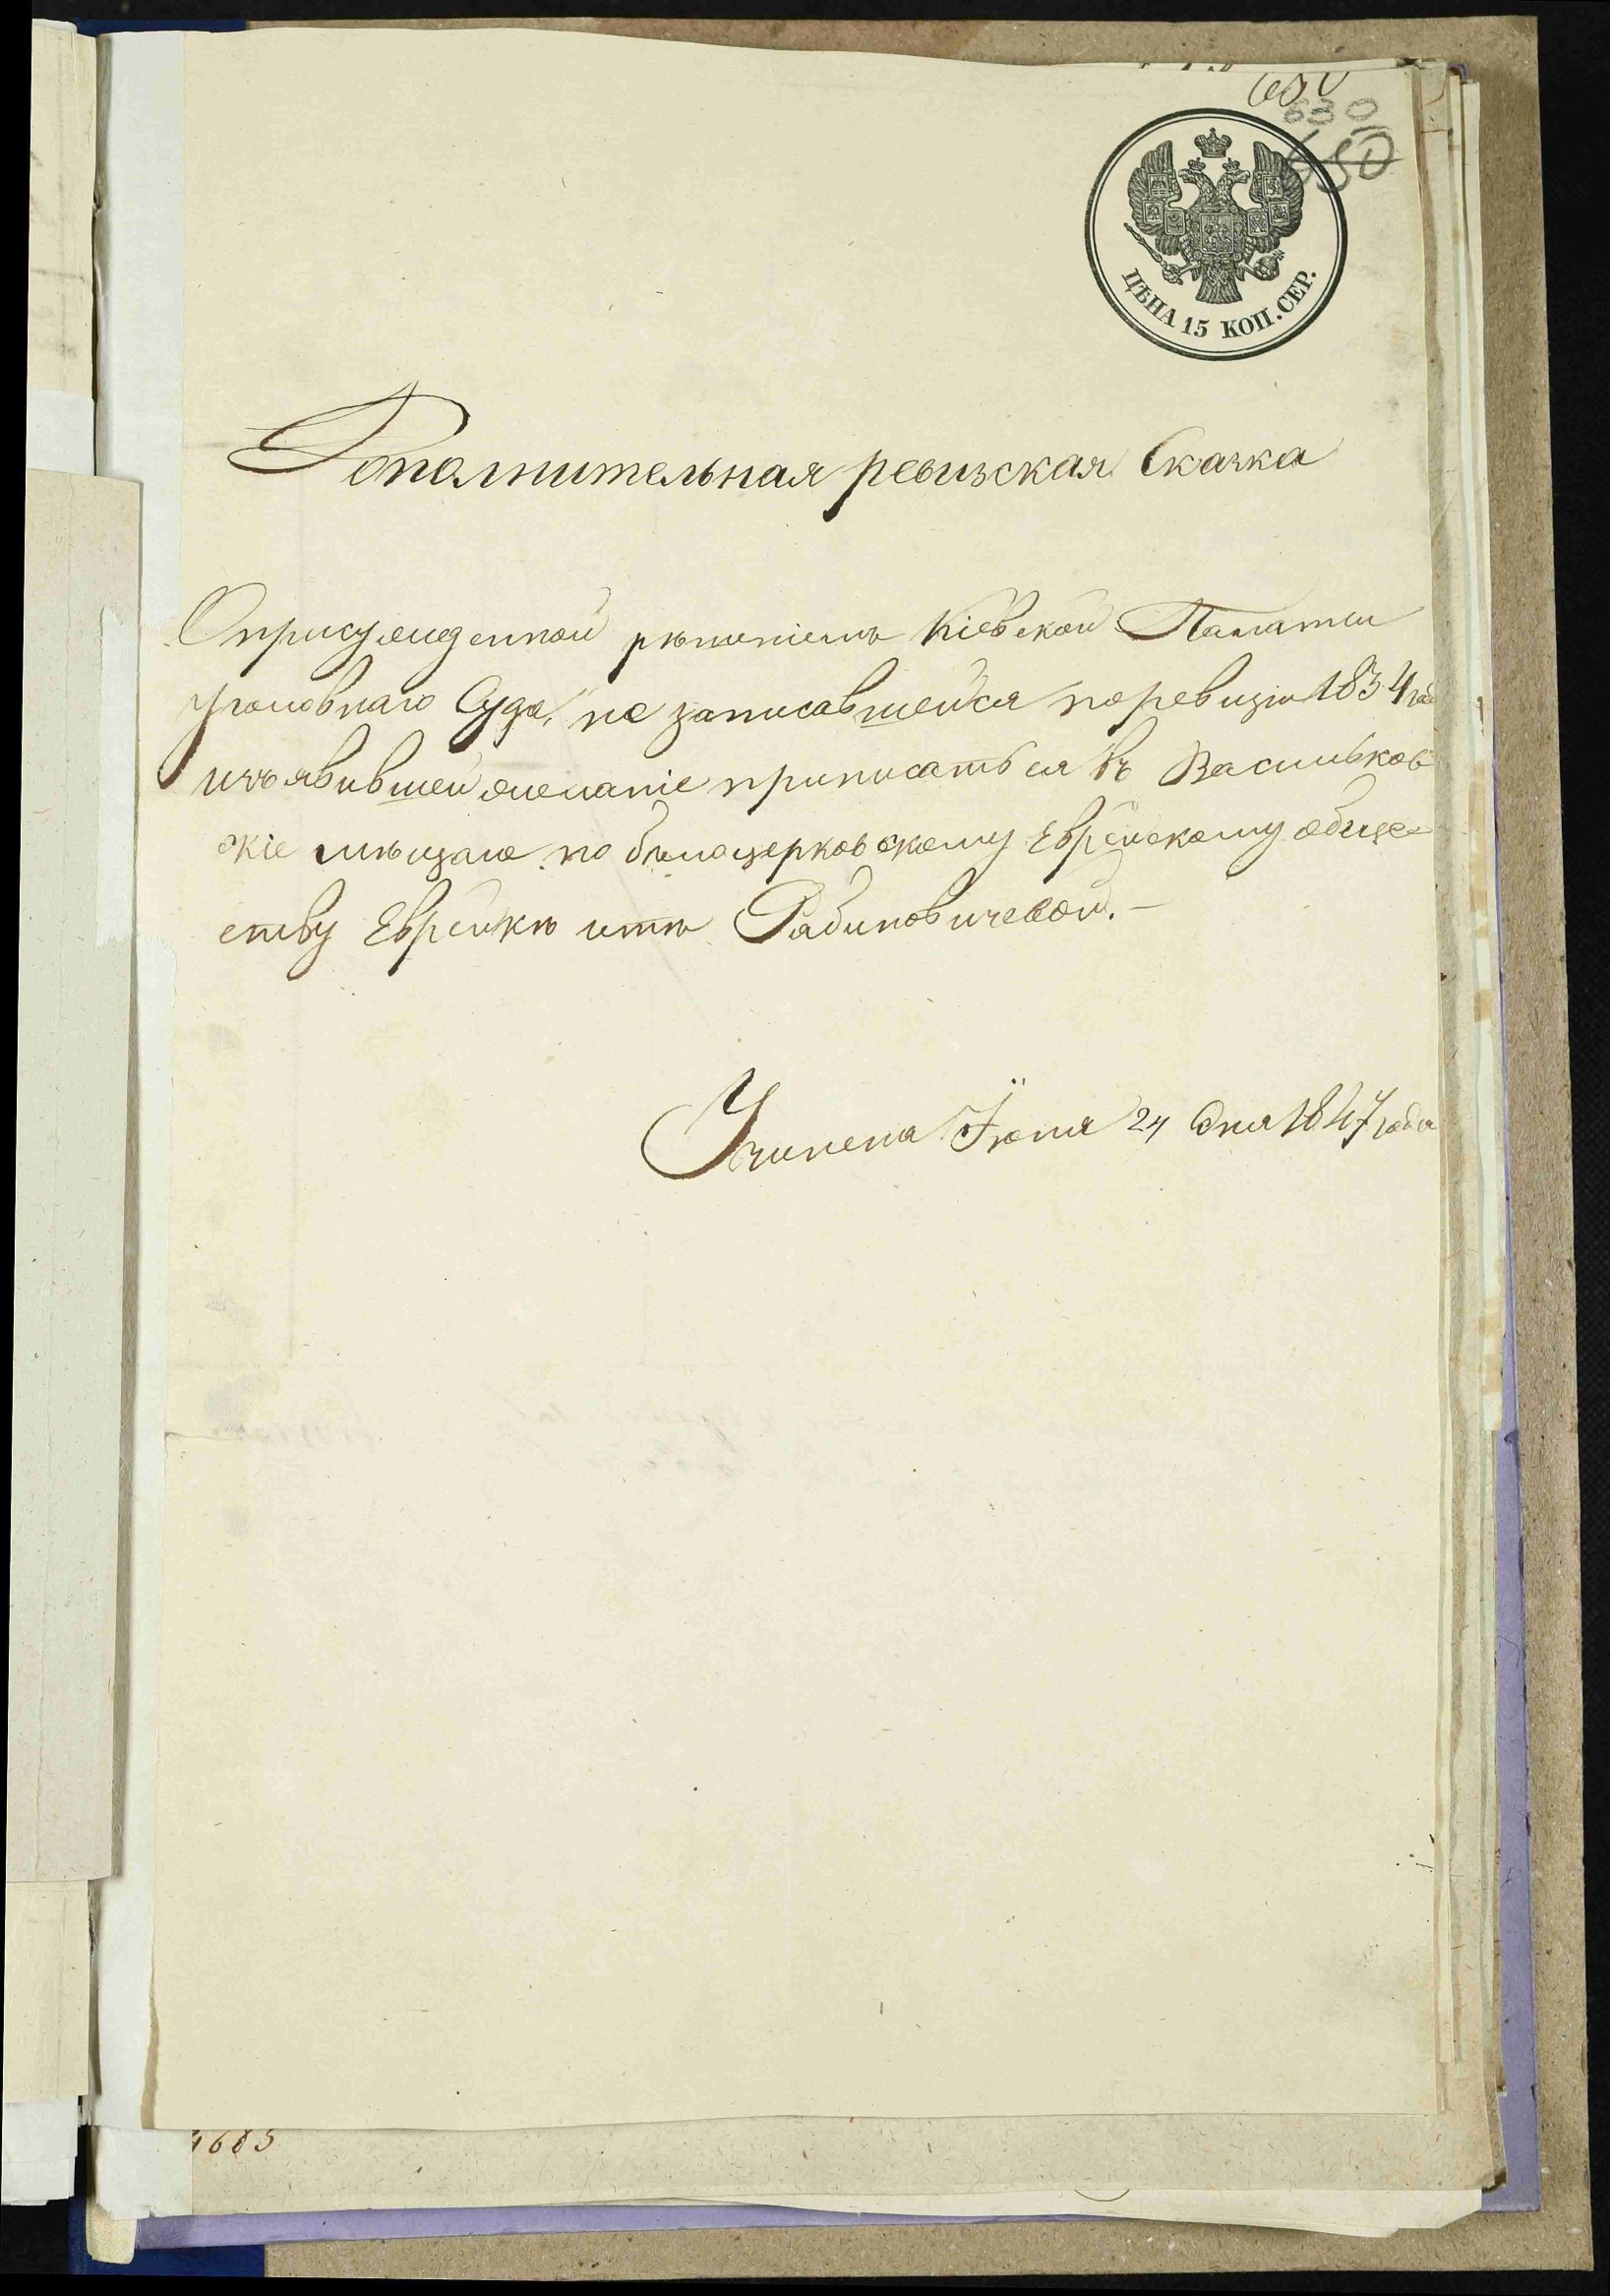 650
630
650
ЦѢНА 15 КОП. СЕР.
Дополнительная ревизская Сказка
О присужденной рѣшеніемъ Кіевской Палаты
Уголовнаго Суда, не записавшейся по ревизіи 1834 года
изъявившей желаніе приписаться въ Васильков
скіе мѣщане по бѣлоцерковскому Еврейскому обще
ству Еврейкѣ итѣ Рабиновичевой. –
Учинена Іюня 24 дня 1847 года
1685